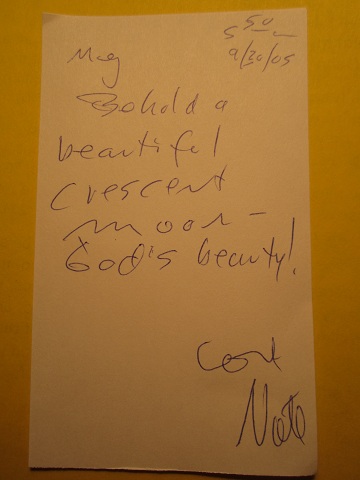 5 50
9/30/05
Meg
Behold a
beautiful
crescent
moon –
God's beauty!
Nate